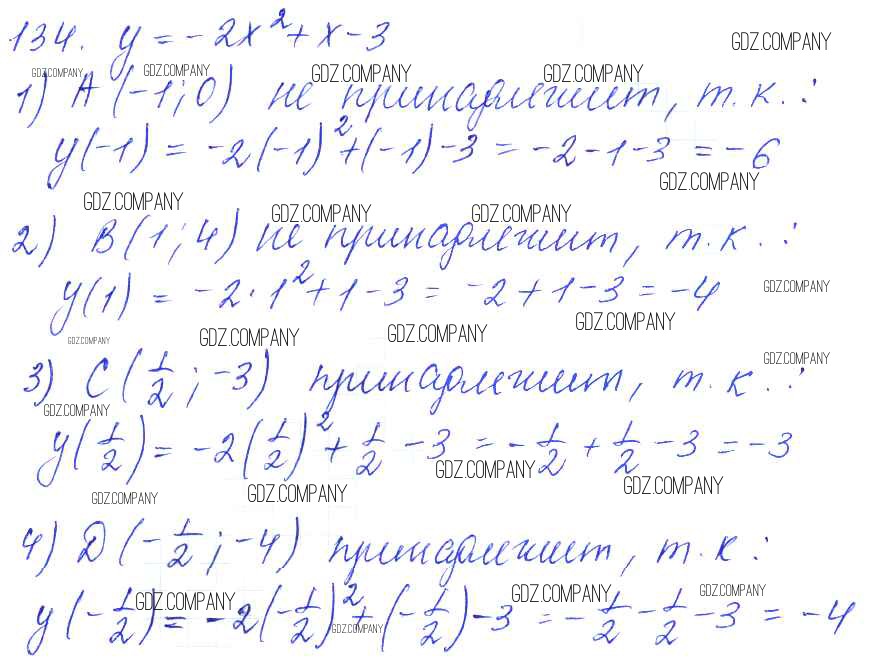 134. y = -2x² + x - 3
GDZ.COMPANY
GDZ.COMPANY GDZ.COMPANY GDZ.COMPANY GDZ.COMPANY
1) A (-1; 0) не принадлежит, т.к.:
y(-1) = -2(-1)² + (-1) - 3 = -2 - 1 - 3 = -6
GDZ.COMPANY
GDZ.COMPANY GDZ.COMPANY GDZ.COMPANY
2) B (1; 4) не принадлежит, т.к.:
y(1) = -2·1² + 1 - 3 = -2 + 1 - 3 = -4
GDZ.COMPANY
GDZ.COMPANY GDZ.COMPANY GDZ.COMPANY GDZ.COMPANY
GDZ.COMPANY
3) C (1/2; -3) принадлежит, т.к.:
GDZ.COMPANY
y(1/2) = -2(1/2)² + 1/2 - 3 = -1/2 + 1/2 - 3 = -3
GDZ.COMPANY
GDZ.COMPANY GDZ.COMPANY GDZ.COMPANY
4) D (-1/2; -4) принадлежит, т.к:
y(-1/2) = -2(-1/2)² + (-1/2) - 3 = -1/2 - 1/2 - 3 = -4
GDZ.COMPANY GDZ.COMPANY GDZ.COMPANY
GDZ.COMPANY